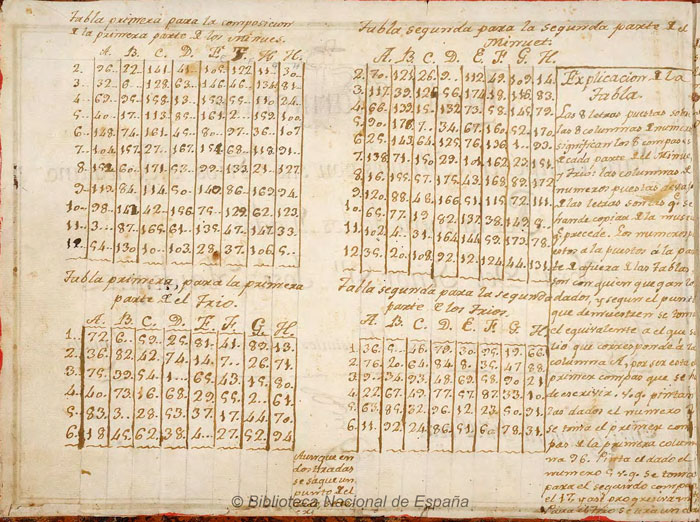 Tabla primera para la composicion
a la primera parte a los minues.
A. B. C. D. E. F. G. H.
2. 96. 22. 141. 41. 105. 122. 11. 30.
3. 32. 6. 128. 63. 146. 46. 134. 81.
4. 69. 95. 158. 13. 153. 55. 110. 24.
5. 40. 17. 113. 85. 161. 2. 159. 100.
6. 148. 74. 163. 45. 80. 97. 36. 107.
7. 104. 157. 27. 167. 154. 68. 118. 91.
8. 152. 60. 171. 53. 99. 133. 21. 127.
9. 119. 84. 114. 50. 140. 86. 169. 94.
10. 98. 142. 42. 156. 75. 129. 62. 123.
11. 3. 87. 165. 61. 135. 47. 147. 33.
12. 54. 130. 10. 103. 28. 37. 106. 5.
Tabla primera, para la primera
parte a el Trio.
A. B. C. D. E. F. G. H.
1. 72. 6. 59. 25. 81. 41. 89. 13.
2. 36. 82. 42. 74. 14. 7. 26. 71.
3. 75. 39. 54. 1. 65. 43. 15. 80.
4. 40. 73. 16. 68. 29. 55. 2. 61.
5. 83. 3. 28. 53. 37. 17. 44. 70.
6. 18. 45. 62. 38. 4. 27. 52. 94.
Aunque en
dos tiradas
se saque un
punto a el
Tabla segunda para la segunda parte a el
Minuet.
A. B. C. D. E. F. G. H.
2. 70. 121. 26. 9. 112. 49. 109. 14.
3. 117. 39. 126. 56. 174. 18. 116. 83.
4. 66. 139. 15. 132. 73. 58. 145. 79.
5. 90. 176. 7. 34. 67. 160. 52. 170.
6. 25. 143. 64. 125. 76. 136. 1. 93.
7. 138. 71. 150. 29. 101. 162. 23. 151.
8. 16. 155. 57. 175. 43. 168. 89. 172.
9. 120. 88. 48. 166. 51. 115. 72. 111.
10. 65. 77. 19. 82. 137. 38. 149. 8.
11. 102. 4. 31. 164. 144. 59. 173. 78.
12. 35. 20. 108. 92. 12. 124. 44. 131.
Tabla segunda para la segunda
parte a los Trios.
A. B. C. D. E. F. G. H.
1. 36. 5. 46. 79. 30. 95. 19. 66.
2. 76. 20. 64. 84. 8. 35. 47. 88.
3. 9. 34. 93. 48. 69. 58. 90. 21.
4. 22. 67. 49. 77. 57. 87. 33. 10.
5. 63. 85. 32. 96. 12. 23. 50. 91.
6. 11. 92. 24. 86. 51. 60. 78. 31.
Explicacion a la
Tabla.
Las 8 letras puestas sobre
las 8 columnas a numeros
significan los 8 compases
a cada parte a el Minue
y Trio: las columnas a
numeros puestas debajo
a las letras son las q. se
han de copiar a la musica
q. precede. Los numeros
puestos a la parte
a afuera a las Tablas
son con quien que gan los
dados, y segun el punto
que demuestren se toma
el equivalente a el que
vio que corresponde a la
columna A, por ser esta
primer compas que se ha
de escrivir. V. g. pintan
las dados el numero
se toma el primer com-
pas a la primera colum-
na 96. Pinta el dado el
numero 5. v. g. se toma
para el segundo compas
el 17. y así progresivam.
© Biblioteca Nacional de España